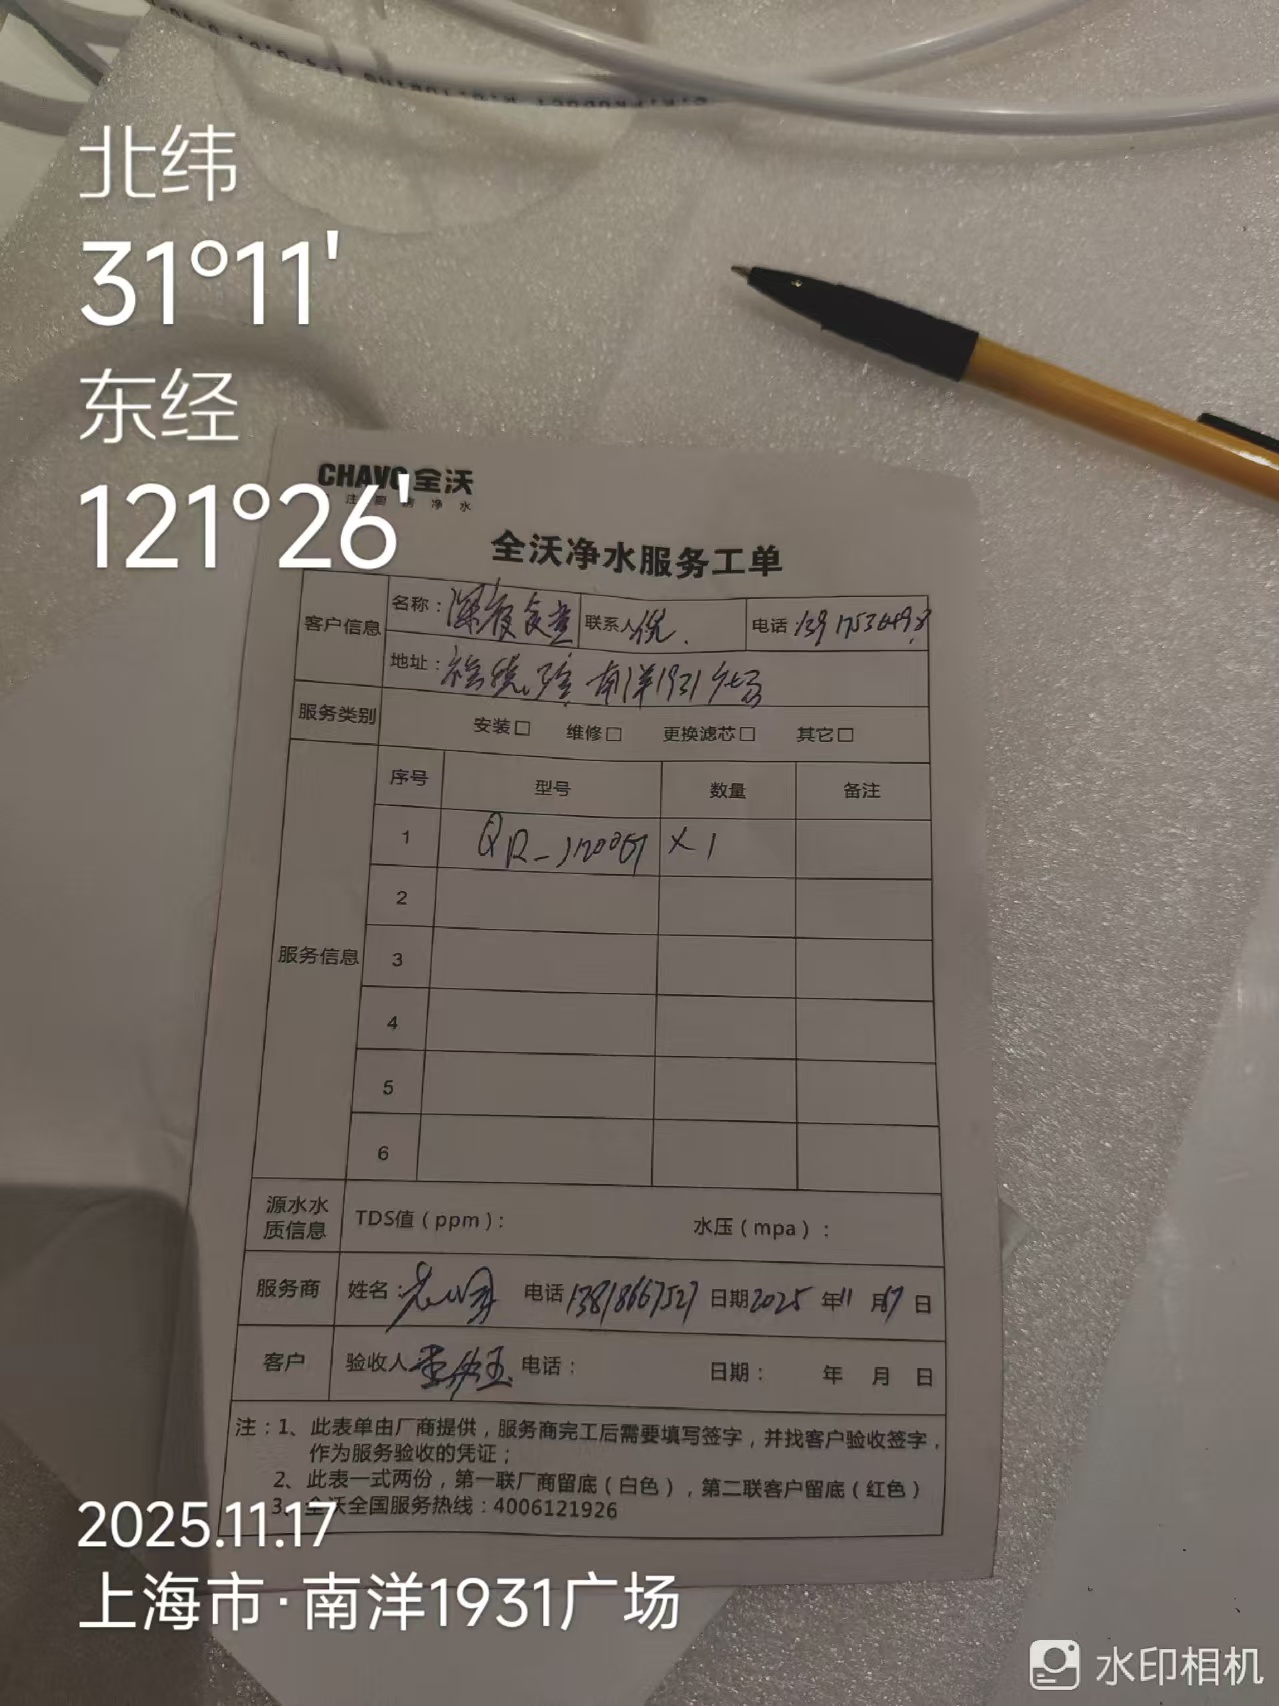 北纬
31°11'
东经
121°26'
CHAVO全沃
注 厨 房 净 水
全沃净水服务工单
客户信息 名称：深夜食堂 联系人 倪. 电话：
地址： 南洋1931广场
服务类别 安装□ 维修□ 更换滤芯□ 其它□
服务信息 序号 型号 数量 备注
1 ×1
2
3
4
5
6
源水水质信息 TDS值（ppm）： 水压（mpa）：
服务商 姓名： 电话 13818667527 日期 2025 年 11 月 17 日
客户 验收人 电话： 日期： 年 月 日
注：1、此表单由厂商提供，服务商完工后需要填写签字，并找客户验收签字，
作为服务验收的凭证；
2、此表一式两份，第一联厂商留底（白色），第二联客户留底（红色）
3、全沃全国服务热线：4006121926
2025.11.17
上海市·南洋1931广场
水印相机